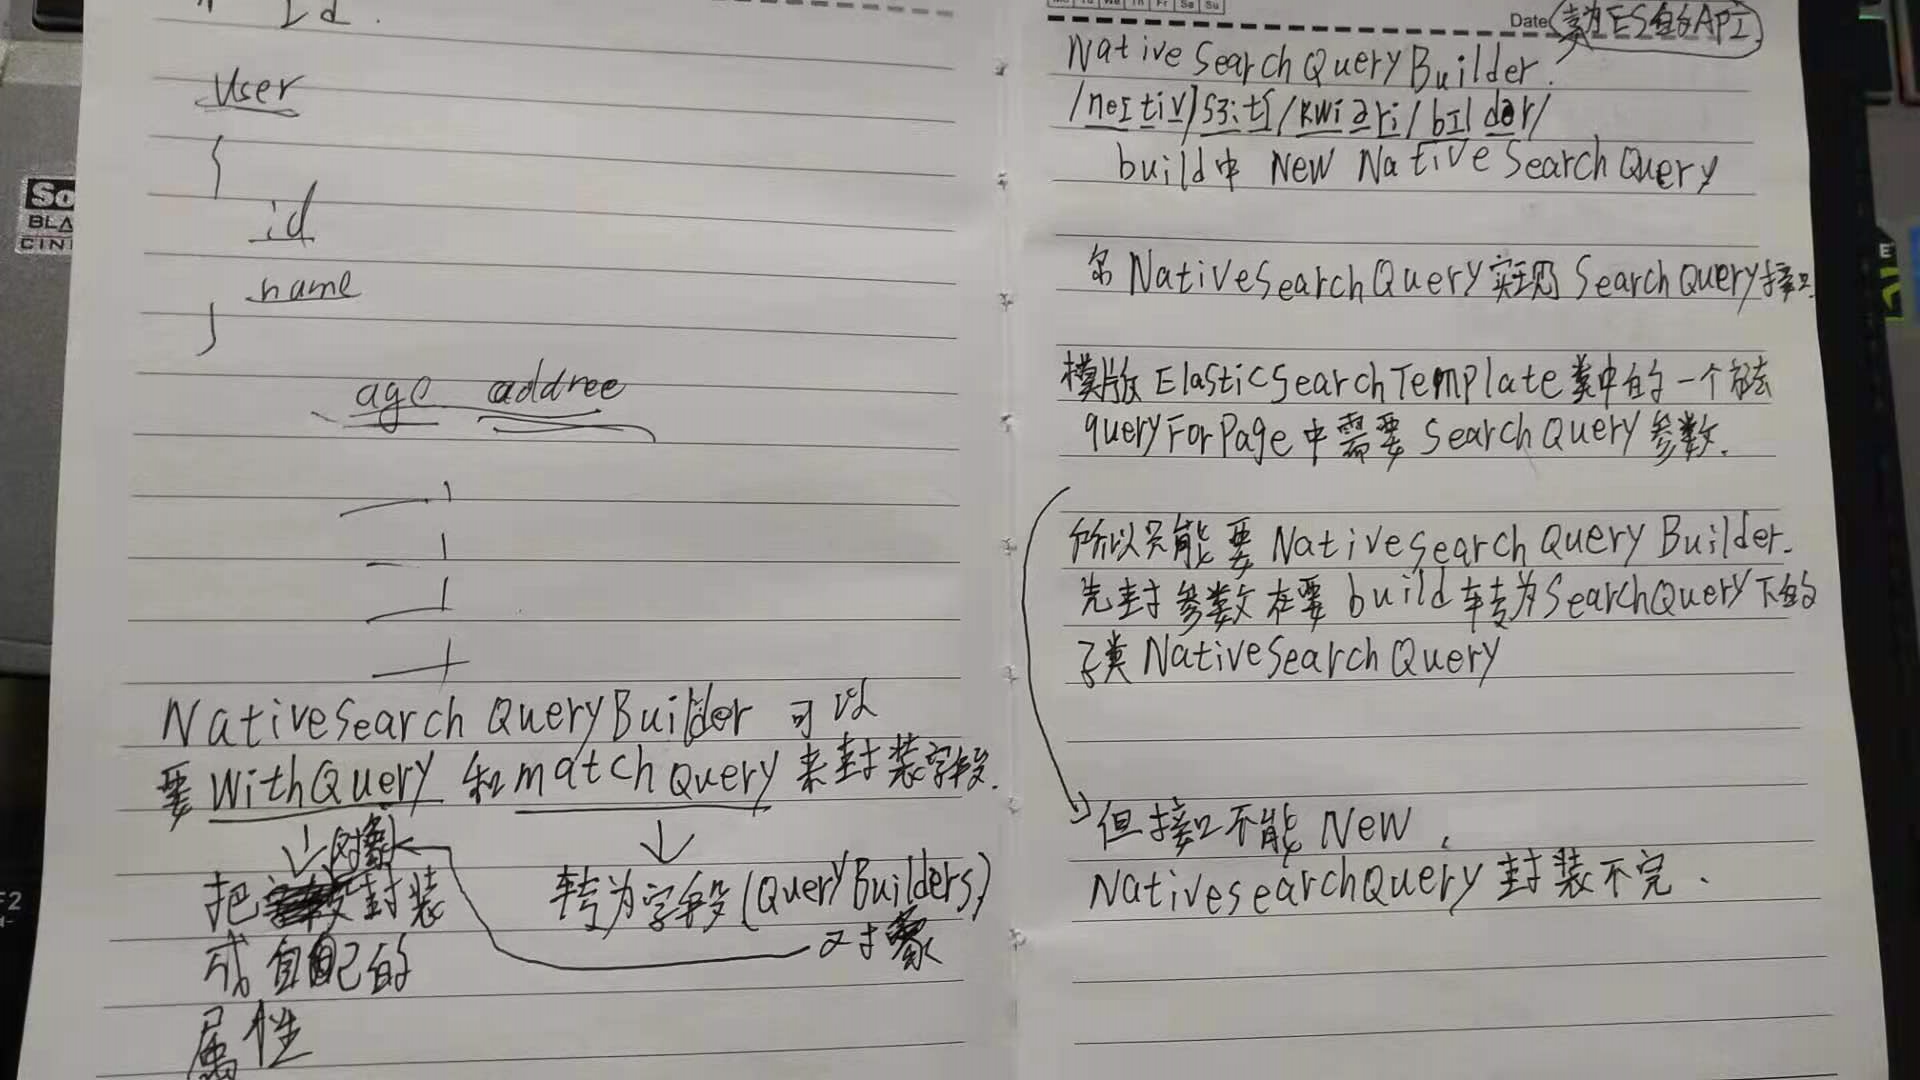 Id.
User
{
id
name
}
age addree
NativeSearchQueryBuilder 可以
要 WithQuery 和 matchQuery 来封装字段.
对象
把 封装
成自己的
属性
转为字段(QueryBuilders)
对象
Mo Tu We Th Fr Sa Su
Date
类为ES自的API
NativeSearchQueryBuilder.
/neɪtiv/sɜːtʃ/kwiəri/bɪldər/
build中 New NativeSearchQuery
NativeSearchQuery 实现 SearchQuery接口.
模版 ElasticSearchTemplate类中的一个方法
queryForPage中需要 SearchQuery 参数.
所以只能要 NativeSearchQueryBuilder.
先封参数在要 build 转为SearchQuery下的
子类 NativeSearchQuery
但接口不能 New,
NativesearchQuery 封装不完.
So
BLA
CIN
F2